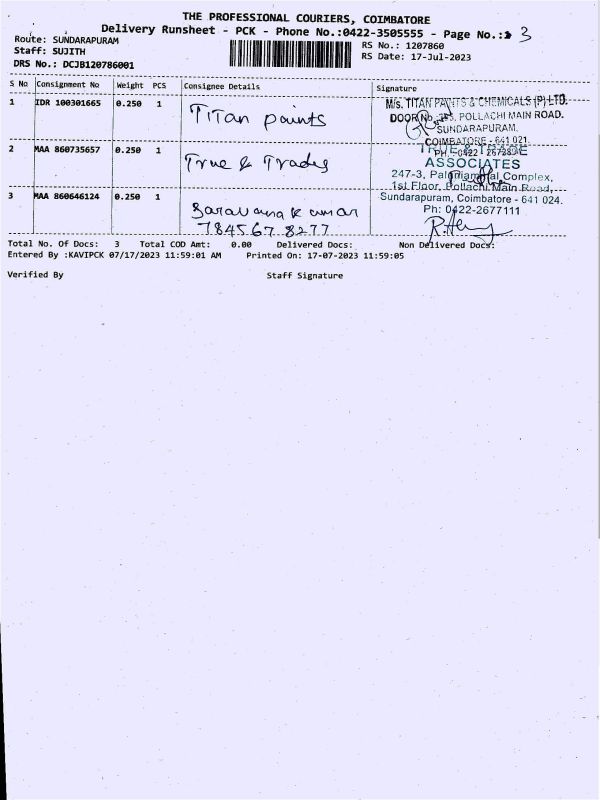 THE PROFESSIONAL COURIERS, COIMBATORE
Delivery Runsheet - PCK - Phone No.:0422-3505555 - Page No.: 3
Route: SUNDARAPURAM
Staff: SUJITH
DRS No.: DCJB120786001
RS No.: 1207860
RS Date: 17-Jul-2023
S No Consignment No Weight PCS Consignee Details Signature
1 IDR 100301665 0.250 1 Titan paints
M/s. TITAN PAINTS & CHEMICALS (P) LTD.
DOOR No. POLLACHI MAIN ROAD.
SUNDARAPURAM.
COIMBATORE - 641 021.
2 MAA 860735657 0.250 1 True & Trades
TRUE & TRADE
ASSOCIATES
247-3, Complex,
1st Floor, Pollachi Main Road,
Sundarapuram, Coimbatore - 641 024.
Ph: 0422-2677111
3 MAA 860646124 0.250 1 Saravanakumar
784567 8277
Total No. Of Docs: 3 Total COD Amt: 0.00 Delivered Docs: Non Delivered Docs:
Entered By :KAVIPCK 07/17/2023 11:59:01 AM Printed On: 17-07-2023 11:59:05
Verified By Staff Signature